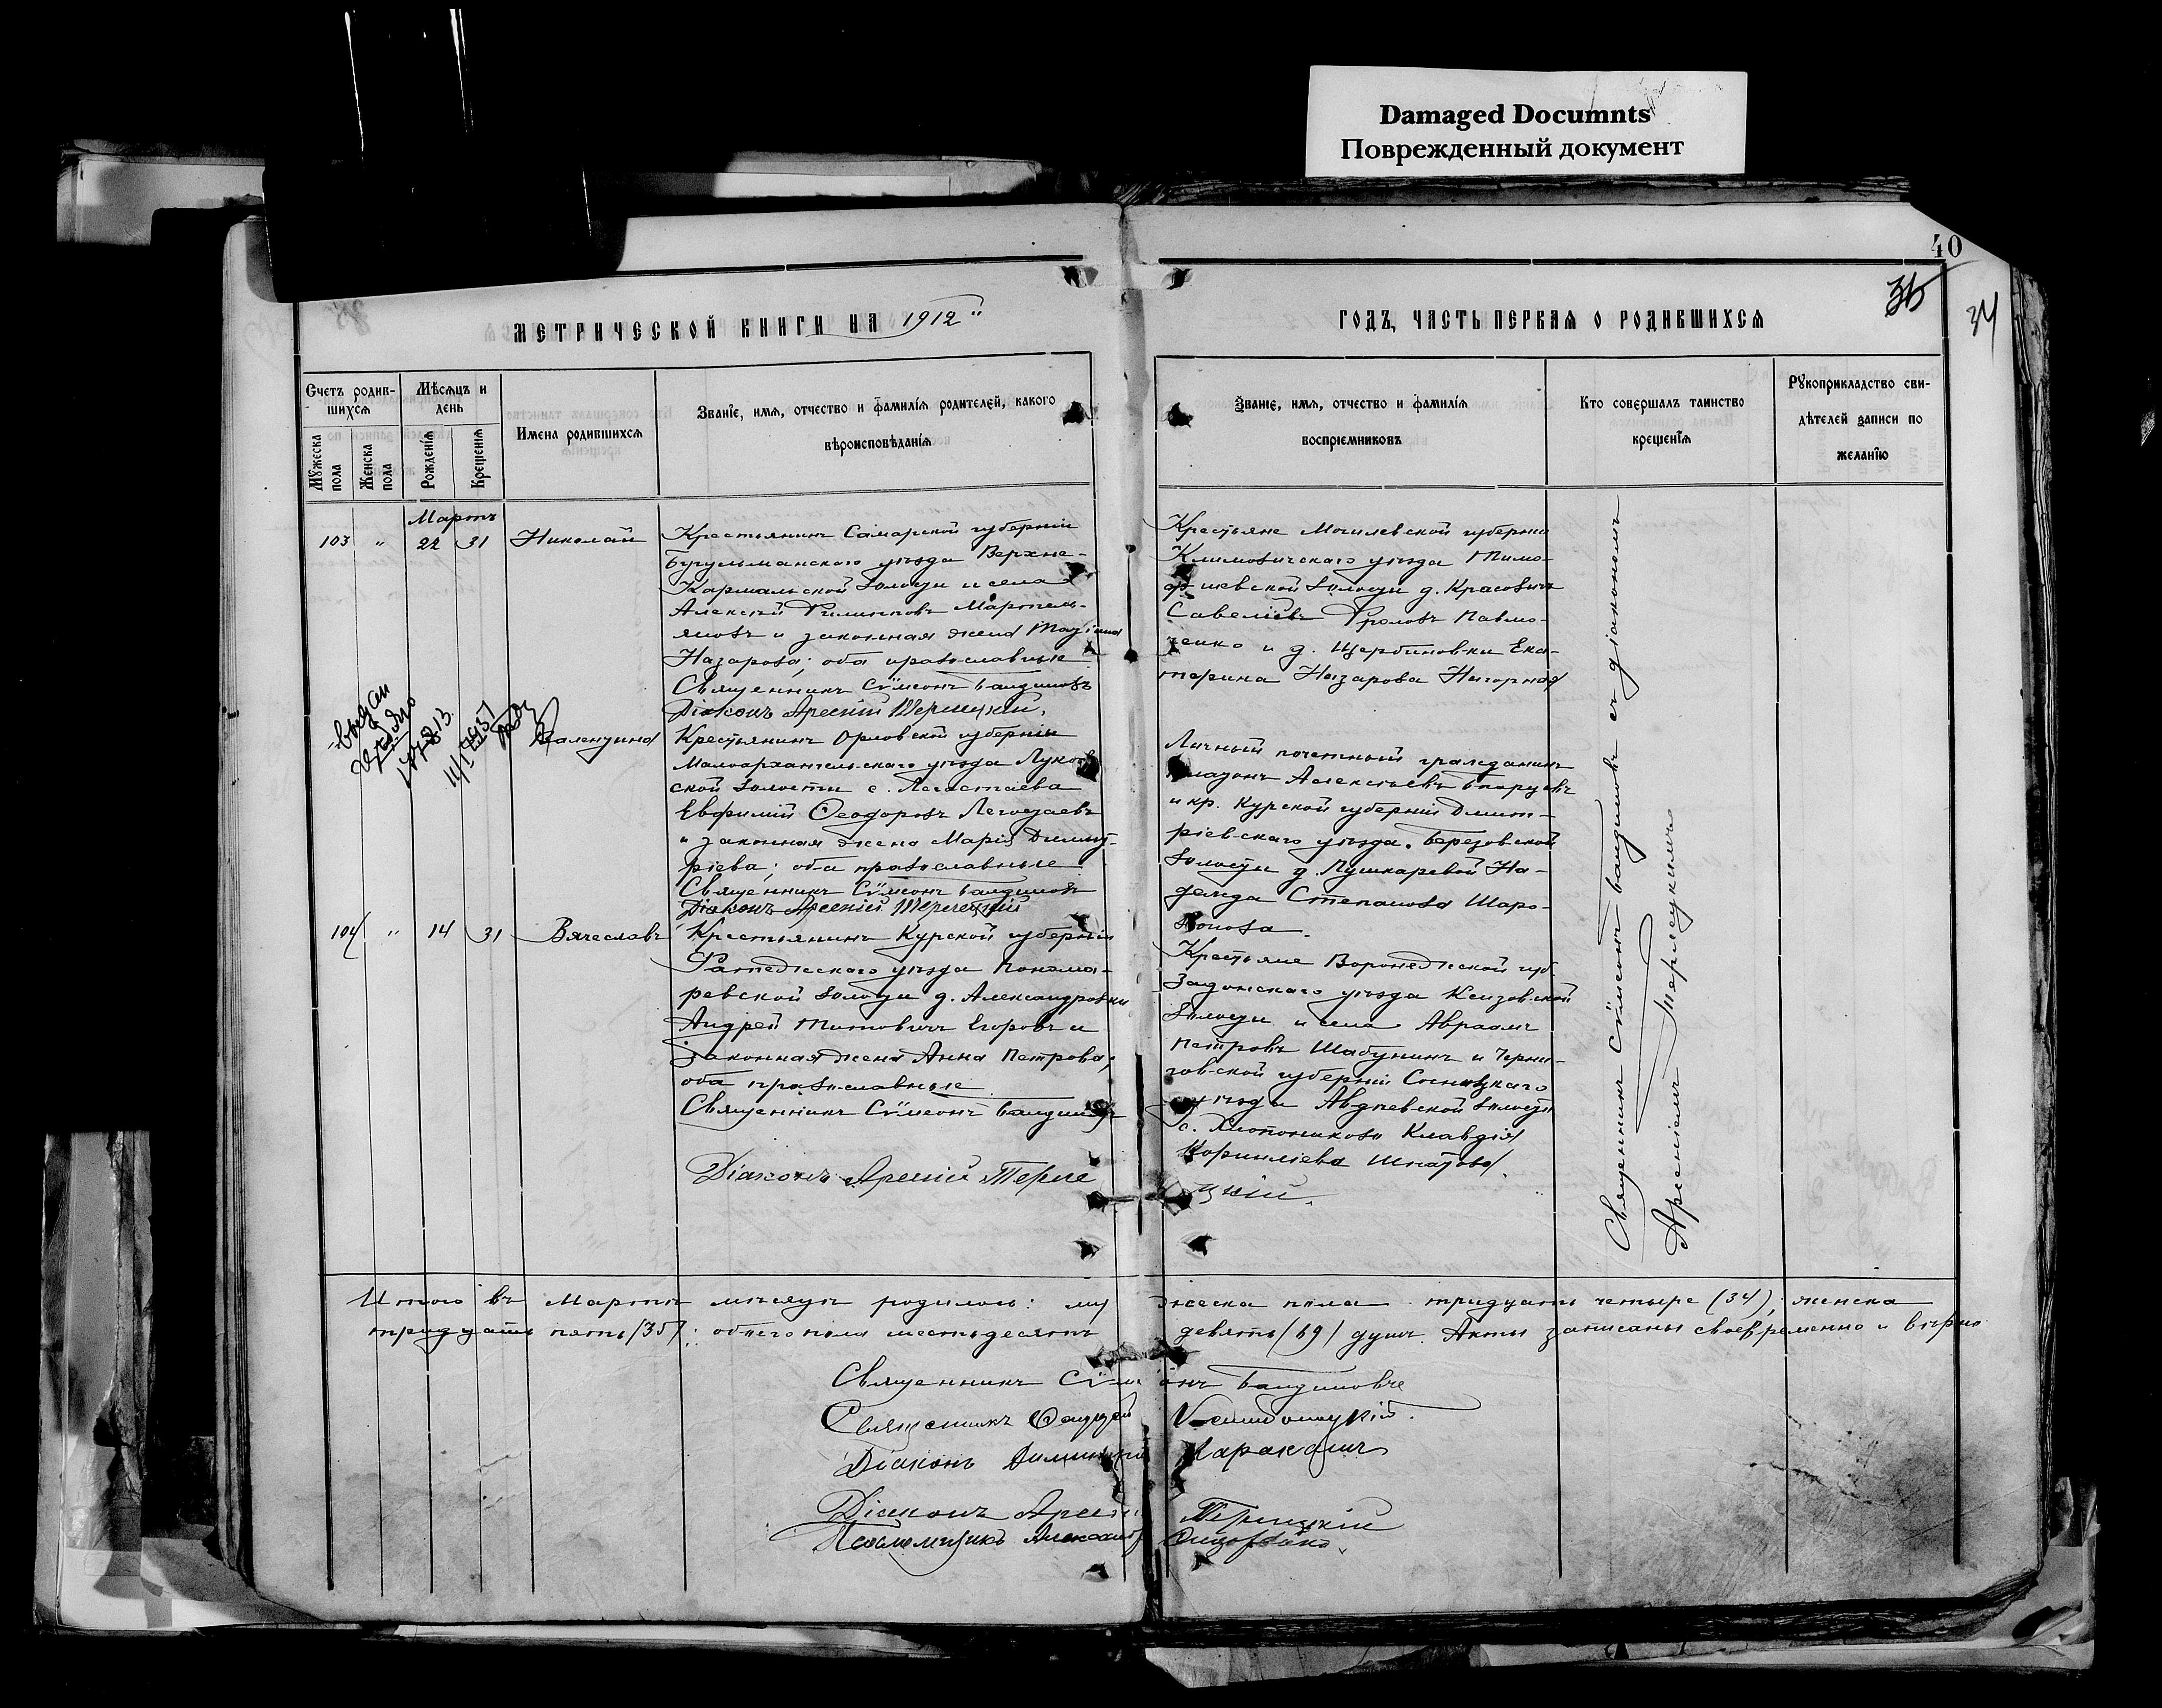 Damaged Documnts
Поврежденный документ
40
35
34
МЕТРИЧЕСКОЙ КНИГИ НА 1912
ГОДЪ, ЧАСТЬ ПЕРВАЯ О РОДИВШИХСЯ
Счетъ родив-
шихся
Мѣсяцъ и
день
Мужеска
пола
Женска
пола
Рожденія
Крещенія
Имена родившихся
Званіе, имя, отчество и фамилія родителей, какого
вѣроисповѣданія
Званіе, имя, отчество и фамилія
воспріемниковъ
Кто совершалъ таинство
крещенія
Рукоприкладство сви-
дѣтелей записи по
желанію
Мартъ
103 " 22 31 Николай
Крестьянинъ Самарской губерніи
Бугульманскаго уѣзда Верхне-
Кармальской волости и села
Алексѣй Филиповъ Мартемь-
яновъ и законная жена
Назарова; оба православные
Священникъ Сѵмеонъ
Діаконъ Арсеній Терлецкій.
Крестьяне Могилевской губерніи
Климовичскаго уѣзда Тимо-
феевской волости д. Красовичъ
Савелій Фроловъ Павлю-
ченко и д. Щербиновки Ека-
терина Назарова Нагорная
выдан
Валентина
Крестьянинъ Орловской губерніи
Малоархангельскаго уѣзда Луков-
ской волости с. Легостаева
Евфимій Ѳеодоровъ Легостаевъ
и законная жена Марія Димит-
ріева; оба православные
Священникъ Сѵмеонъ
Діаконъ Арсеній Терлецкій
Личный почетный гражданинъ
Алексѣевъ
и кр. Курской губерніи Дмит-
ріевскаго уѣзда Березовской
волости д. Пушкаревой На-
дежда Степанова Шаро-
104 " 14 31 Вячеславъ
Крестьянинъ Курской губерніи
уѣзда Понома-
ревской волости д. Александровки
Андрей Титовичъ Егоровъ и
законная жена Анна Петрова;
оба православные
Священникъ Сѵмеонъ
Діаконъ Арсеній Терле
цкій.
Крестьяне Воронежской губ.
Задонскаго уѣзда Ксизовской
волости и села Авраамъ
Петровъ Шабунинъ и Черни-
говской губерніи Сосницкаго
уѣзда Авдѣевской волости
с. Хлопоникова Клавдія
Корниліева Игнатова.
Священникъ Сѵмеонъ съ діакономъ
Арсеніемъ Терлецкимъ
Итого въ Мартѣ мѣсяцѣ родилось: мужеска пола тридцать четыре (34); женска
тридцать пять (35); обоего пола шестьдесятъ девять (69) душъ. Акты записаны своевременно и вѣрно
Священникъ Сѵмеонъ
Священникъ
Діаконъ Димитрій
Діаконъ Арсеній Терлецкій
Псаломщикъ